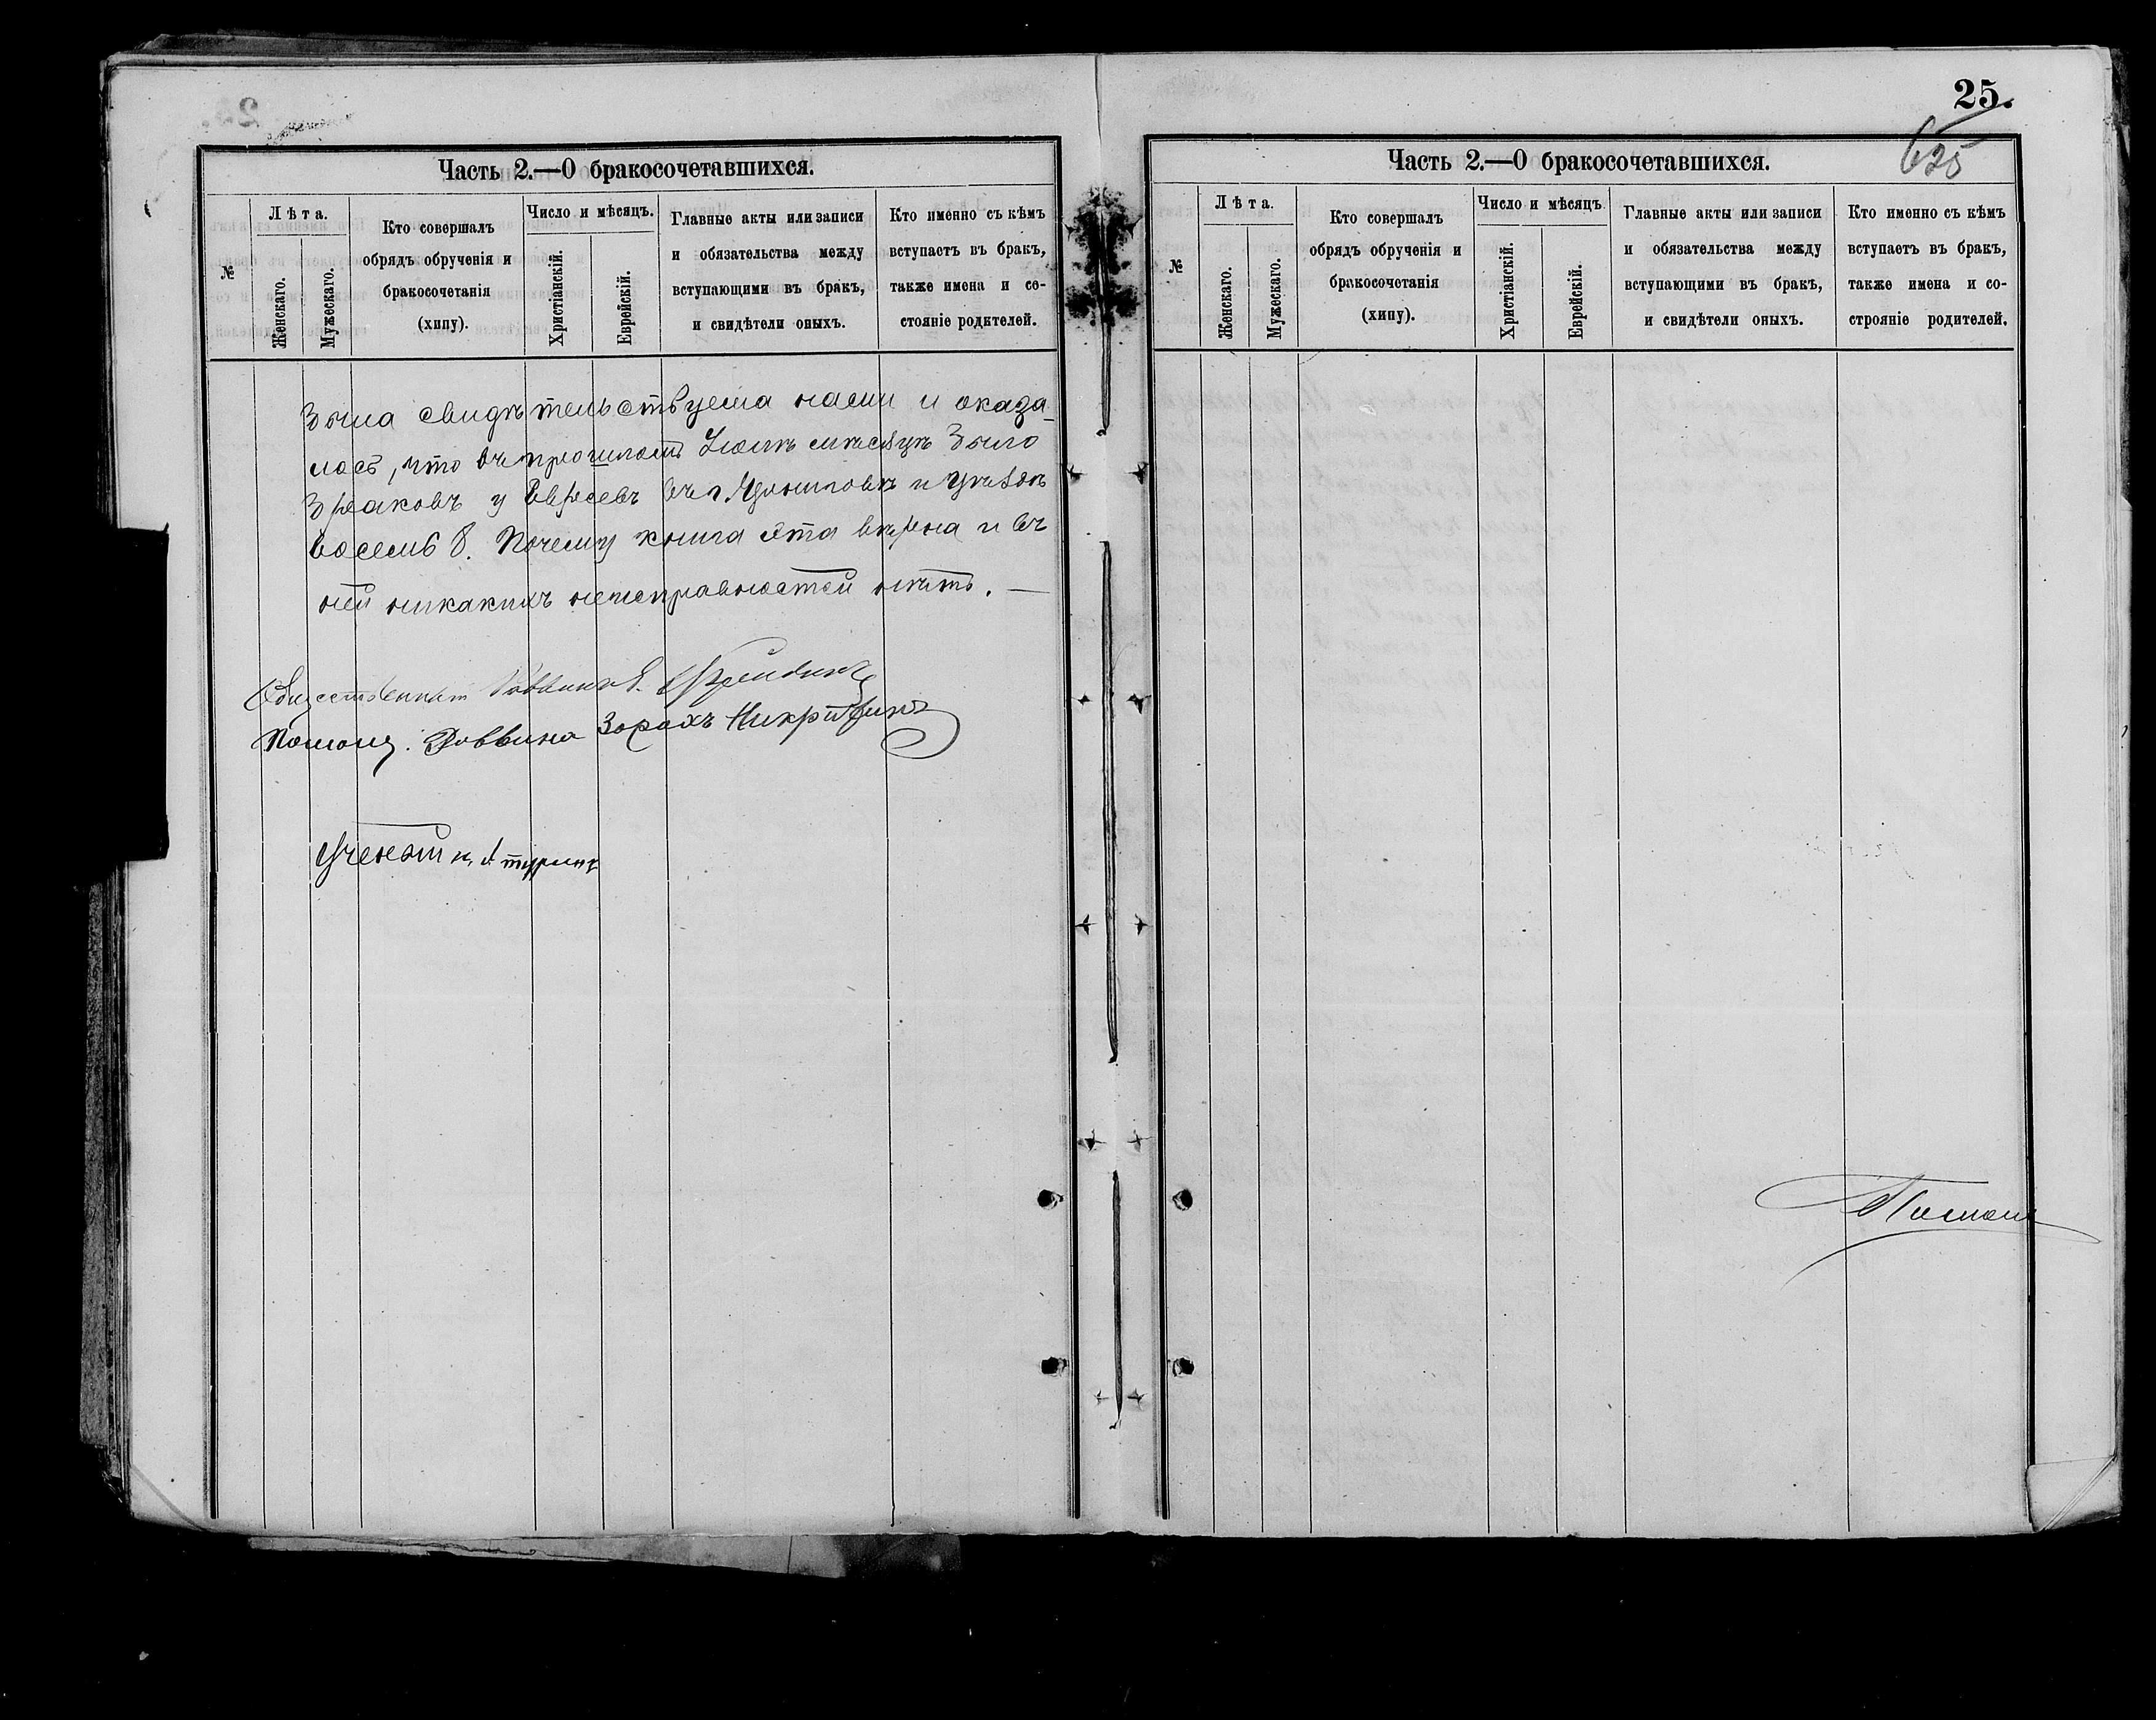 25.
625
Часть 2.—О бракосочетавшихся.
№
Лѣта.
Женскаго.
Мужескаго.
Кто совершалъ
обрядъ обрученія и
бракосочетанія
(хипу).
Число и мѣсяцъ.
Христіанскій.
Еврейскій.
Главные акты или записи
и обязательства между
вступающими въ бракъ,
и свидѣтели оныхъ.
Кто именно съ кѣмъ
вступаетъ въ бракъ,
также имена и со-
стояніе родителей.
была свидѣтельствуема нами и оказа-
лось, что въ прошломъ Іюлѣ мѣсяцѣ было
браковъ у Евреевъ въ г. и уѣздѣ
восемь 8. Почему книга эта вѣрна и въ
ней никакихъ неисправностей нѣтъ. —
Общественный Раввинъ
Помощ. Раввина Зорахъ
Ученый
Часть 2.—О бракосочетавшихся.
№
Лѣта.
Женскаго.
Мужескаго.
Кто совершалъ
обрядъ обрученія и
бракосочетанія
(хипу).
Число и мѣсяцъ.
Христіанскій.
Еврейскій.
Главные акты или записи
и обязательства между
вступающими въ бракъ,
и свидѣтели оныхъ.
Кто именно съ кѣмъ
вступаетъ въ бракъ,
также имена и со-
строяніе родителей.